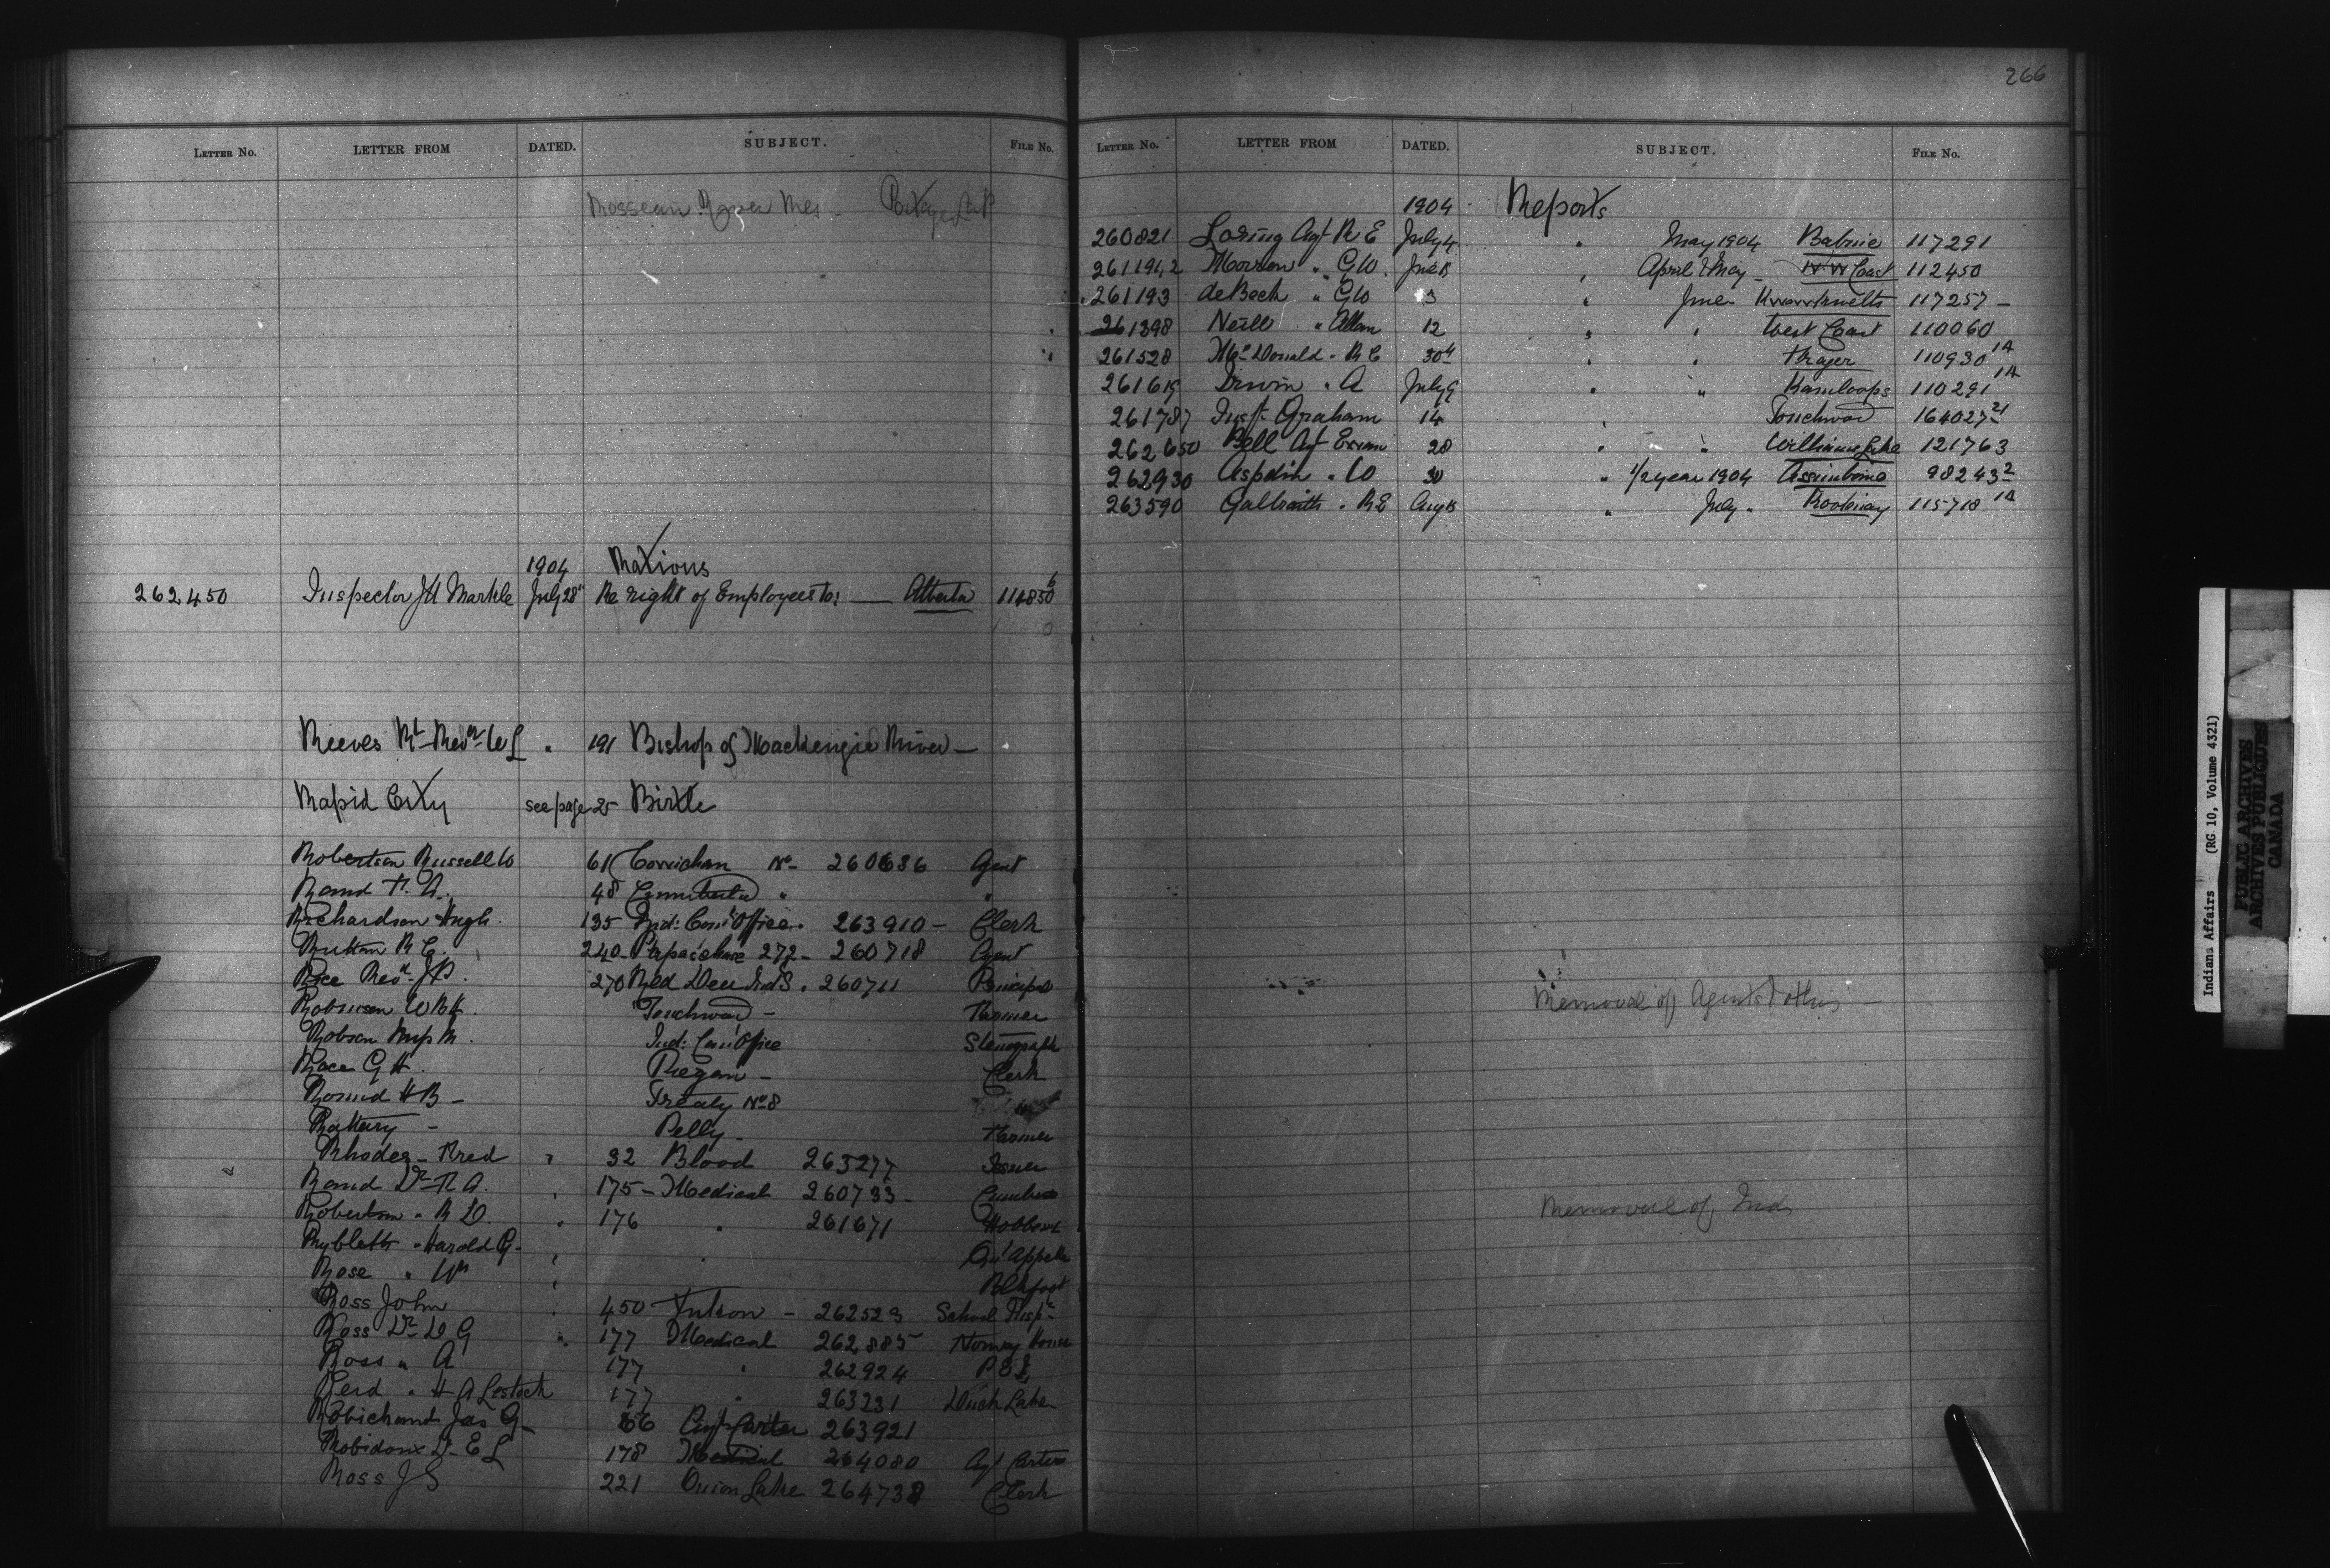 LETTER NO. LETTER FROM DATED. SUBJECT. FILE NO.
Rosseau River Res - Portage La P
1904 Rations
262450 Inspector JH Markle July 28" Re right of Employees to: — Alberta
Reeves Rt Revd W " 191 Bishop of Mackenzie River —
Rapid City see page 25 Birtle
Robertson Russell W 61 Cowichan No- 260636 Agent
Rand F. A. 48 "
Richardson Hugh. 135 Ind: Com: Office. 263910 - Clerk
Rutton R C. 240 - Papaschase 272 - 260718 Agent
Rice Revd J P. 270 Red Deer Ind S. 260711 Principal
Robinson W R H. Touchwood - Farmer
Robson Miss M. Ind: Com: Office Stenograph
Race G H. Piegan - Clerk
Round H B - Treaty No 8
Rattery - Pelly - Farmer
Rhodes - Fred " 32 Blood 263277 Issuer
Rand Dr F A. " 175 - Medical 260733 -
Robertson " R D. " 176 " 261671 Hobbema
Harold G - " " Qu'Appelle
Rose " Wm " Blkfoot
Ross John " 450 Yukon - 262523 School Insp.
Ross Dr D G " 177 Medical 262885 Norway House
Ross " A 177 " 262924 P E I
" H A Lestock 177 " 263231 Duck Lake -
Robichaud Jas G - 66 Agt Carter 263921
Robidoux D. E L 178 Medical 264080 Agt Carter
Ross J S 221 Onion Lake 264738 Clerk
266
LETTER NO. LETTER FROM DATED. SUBJECT. FILE NO.
1904 Reports
260821 Loring Agt R E July 4 " May 1904 Babine 117291
Morrow " G W. " April & May - N W Coast 112450
261193 de Beck " G W 3 " June - Kwawkwelts 117257 -
261398 Neill " Allan 12 " " West Coast 110060
261528 McDonald " R C 30" " " Fraser 110930 1A
261619 Irwin " A July 9 " " Kamloops 110291 1A
261787 Insp. Graham 14 " Touchwood 164027 21
262650 Bell Agt 28 " " Williams Lake 121763
262930 Aspdin " W 30 " 1/2 year 1904 Assiniboine 98243 2
263590 Galbraith " R E Aug " July " Kootenay 115718 1A
Removal of Agents & others —
Removal of Inds
Indians Affairs (RG 10, Volume 4321)
PUBLIC ARCHIVES
ARCHIVES PUBLIQUES
CANADA